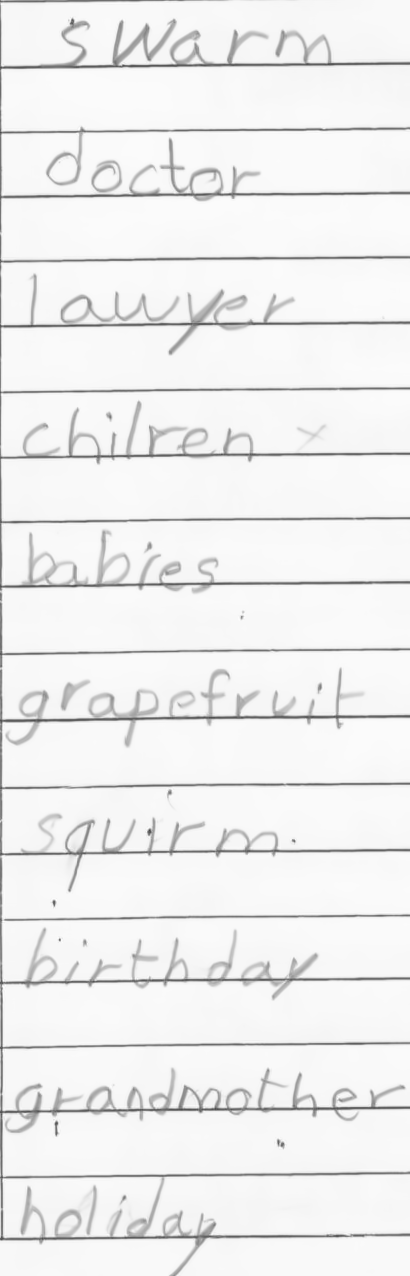 swarm
doctor
lawyer
chilren x
babies
grapefruit
squirm.
birthday
grandmother
holiday